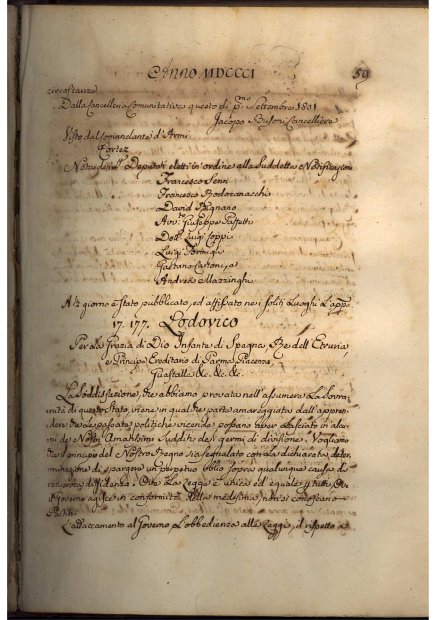 Anno MDCCCI
59
circostanza
Dalla Cancelleria Comunitativa questo dì p.mo Settembre 1801
Jacopo Busoni Cancelliere
Visto dal Comandante d'Armi
Cortez
Nota dei Deputati eletti in ordine alla Suddetta Notificazione
Francesco Senn
Francesco
David
Avv.to Giuseppe
Dott. Luigi Coppi
Luigi
Gaetano
Andrea Mazzinghi
giorno è stato pubblicato, ed affisso nei soliti Luoghi L'app.
17. 177. Lodovico
Per la Grazia di Dio Infante di Spagna, Re dell'Etruria,
e Principe Ereditario di Parma, Piacenza,
Guastalla &c. &c. &c.
La Soddisfazione, che abbiamo provata nell'assumere La Sovra
nità di questo Stato, viene in qualche parte amareggiata dall'appren
dere che Le passate politiche vicende possano aver lasciato in alcu
ni de Nostri Amatissimi Sudditi de germi di divisione. Vogliamo
che il principio del Nostro Regno sia segnalato con La dichiarata deter
minazione di spargere un perpetuo oblio sopra qualunque causa di
reciproca diffidenza. Ove La Legge è unica ed equale a tutti, Ove
il Governo agisce in conformità della medesima, non si conoscono
Partiti.
L'attaccamento al Governo, L'obbedienza alle Leggi, il rispetto a